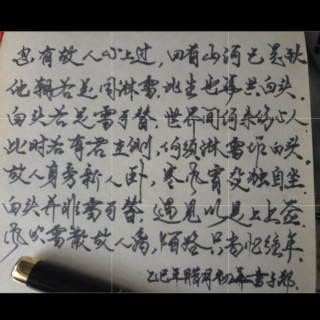 忽有故人心上过，回首山河已是秋
他朝若是同淋雪，此生也算共白头
白头若是雪可替，世界间何来伤心人
此时若有君在侧，何须淋雪作白头
故人身旁新人卧，寒风宵夜独自坐
白头并非雪可替，遇见以是上上签
风吹雪散故人离，陌路只当忆往年
乙巳年腊月